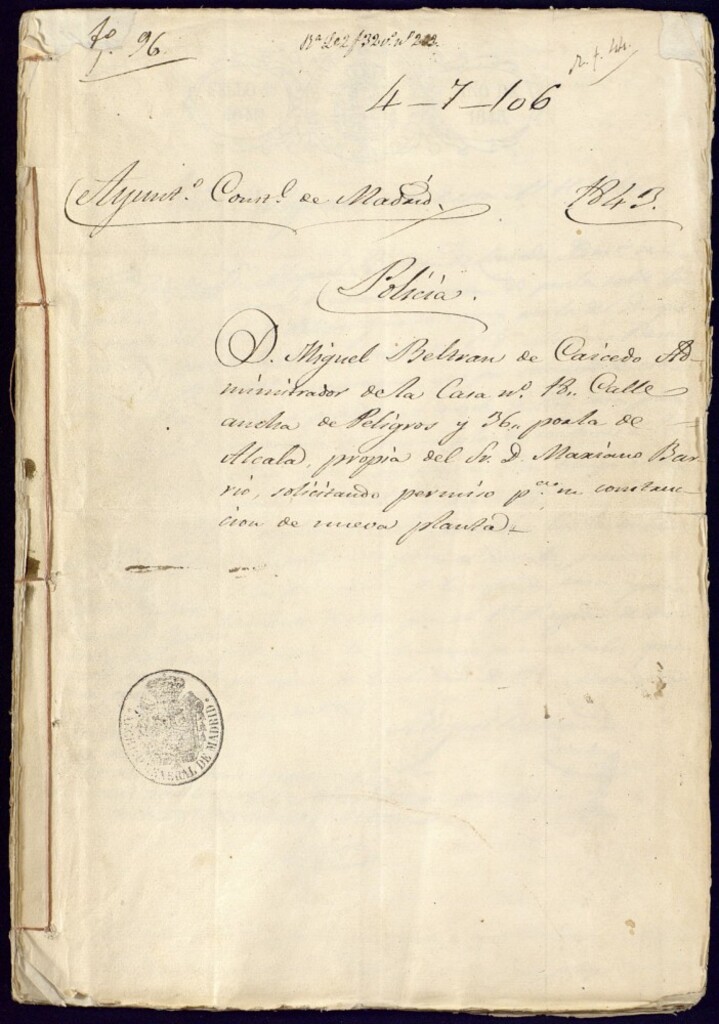 fº. 96.
4-7-106
Ayuntº. Constl. de Madrid. 1843.
Policía.
D. Miguel Beltran de Caicedo Ad-
ministrador de la Casa nº. 13,, Calle
ancha de Peligros y 36,, por la de
Alcalá, propia del Sr. D. Mariano Bar-
rio, solicitando permiso pª. su construc-
cion de nueva planta.
GENERAL DE MADRID